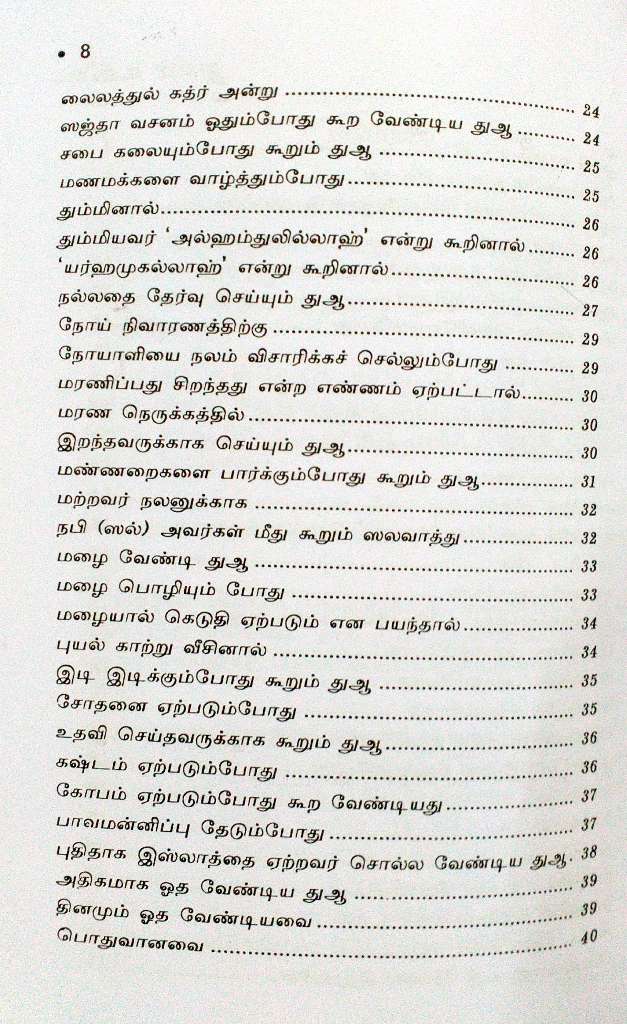 • 8
லைலத்துல் கத்ர் அன்று ........................................ 24
ஸஜ்தா வசனம் ஓதும்போது கூற வேண்டிய துஆ .......... 24
சபை கலையும்போது கூறும் துஆ .......................... 25
மணமக்களை வாழ்த்தும்போது.............................. 25
தும்மினால்.................................................... 26
தும்மியவர் 'அல்ஹம்துலில்லாஹ்' என்று கூறினால்........ 26
'யர்ஹமுகல்லாஹ்' என்று கூறினால்........................ 26
நல்லதை தேர்வு செய்யும் துஆ.............................. 27
நோய் நிவாரணத்திற்கு ...................................... 29
நோயாளியை நலம் விசாரிக்கச் செல்லும்போது ............ 29
மரணிப்பது சிறந்தது என்ற எண்ணம் ஏற்பட்டால்.......... 30
மரண நெருக்கத்தில்.......................................... 30
இறந்தவருக்காக செய்யும் துஆ.............................. 30
மண்ணறைகளை பார்க்கும்போது கூறும் துஆ................ 31
மற்றவர் நலனுக்காக ........................................ 32
நபி (ஸல்) அவர்கள் மீது கூறும் ஸலவாத்து................ 32
மழை வேண்டி துஆ .......................................... 33
மழை பொழியும் போது ...................................... 33
மழையால் கெடுதி ஏற்படும் என பயந்தால்.................. 34
புயல் காற்று வீசினால் ...................................... 34
இடி இடிக்கும்போது கூறும் துஆ .......................... 35
சோதனை ஏற்படும்போது .................................... 35
உதவி செய்தவருக்காக கூறும் துஆ.......................... 36
கஷ்டம் ஏற்படும்போது ...................................... 36
கோபம் ஏற்படும்போது கூற வேண்டியது.................... 37
பாவமன்னிப்பு தேடும்போது.................................. 37
புதிதாக இஸ்லாத்தை ஏற்றவர் சொல்ல வேண்டிய துஆ. 38
அதிகமாக ஓத வேண்டிய துஆ .............................. 39
தினமும் ஓத வேண்டியவை.................................. 39
பொதுவானவை ................................................ 40